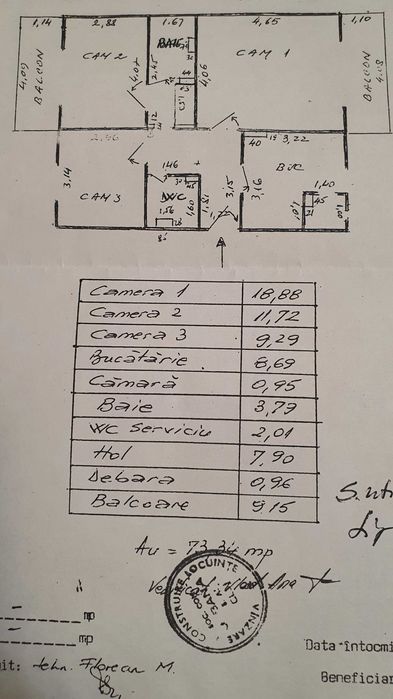 1,14 2,88 1.67 4,65 1,10
BALCON 4,09 CAM 2 4,07 BAIE 2,45 4,06 CAM 1 BALCON 4,08
2,96 40 3,22
3,14 CAM 3 1,46 WC 1,56 1,60 1,81 3,15 3,16 BUC 1,40 45
Camera 1 18,88
Camera 2 11,72
Camera 3 9,29
Bucătărie 8,69
Cămară 0,95
Baie 3,79
WC Serviciu 2,01
Hol 7,90
Debara 0,96
Balcoane 9,15
Au = 73,34 mp
CONSTRUIRE LOCUINTE VINZARE
mp
mp
Data întocmi
it: tehn. Florean M.
Beneficiar